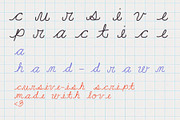 cursive
practice
a
hand-drawn
cursive-ish script
made with love
<3